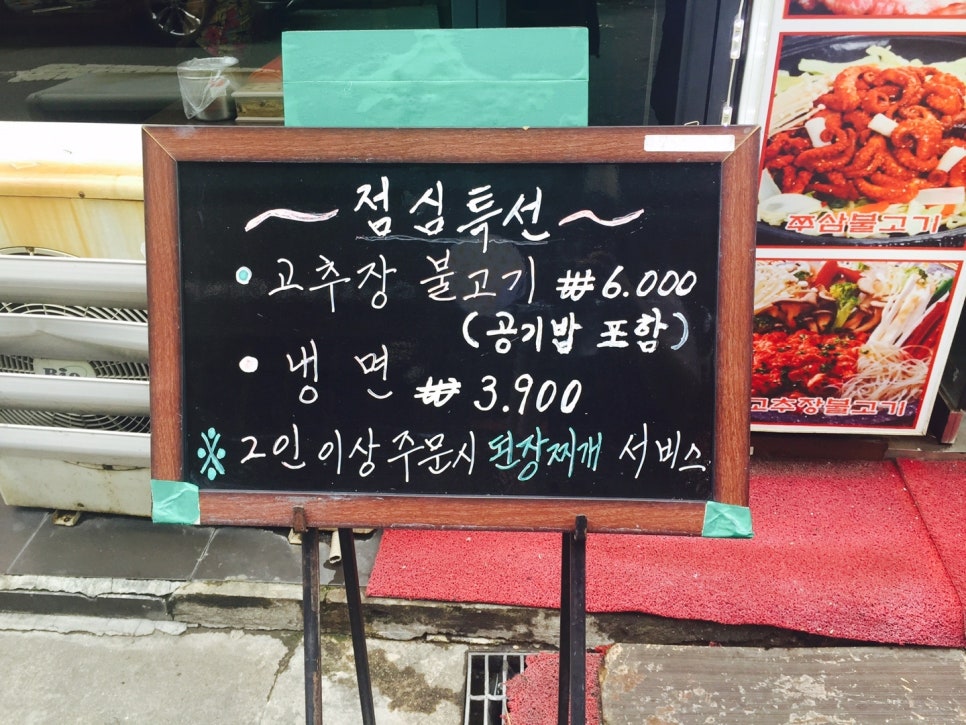 ~점심특선~
• 고추장 불고기 ₩6.000
(공기밥 포함)
• 냉면 ₩3.900
※ 2인 이상 주문시 된장찌개 서비스
쭈삼불고기
고추장불고기
Bio